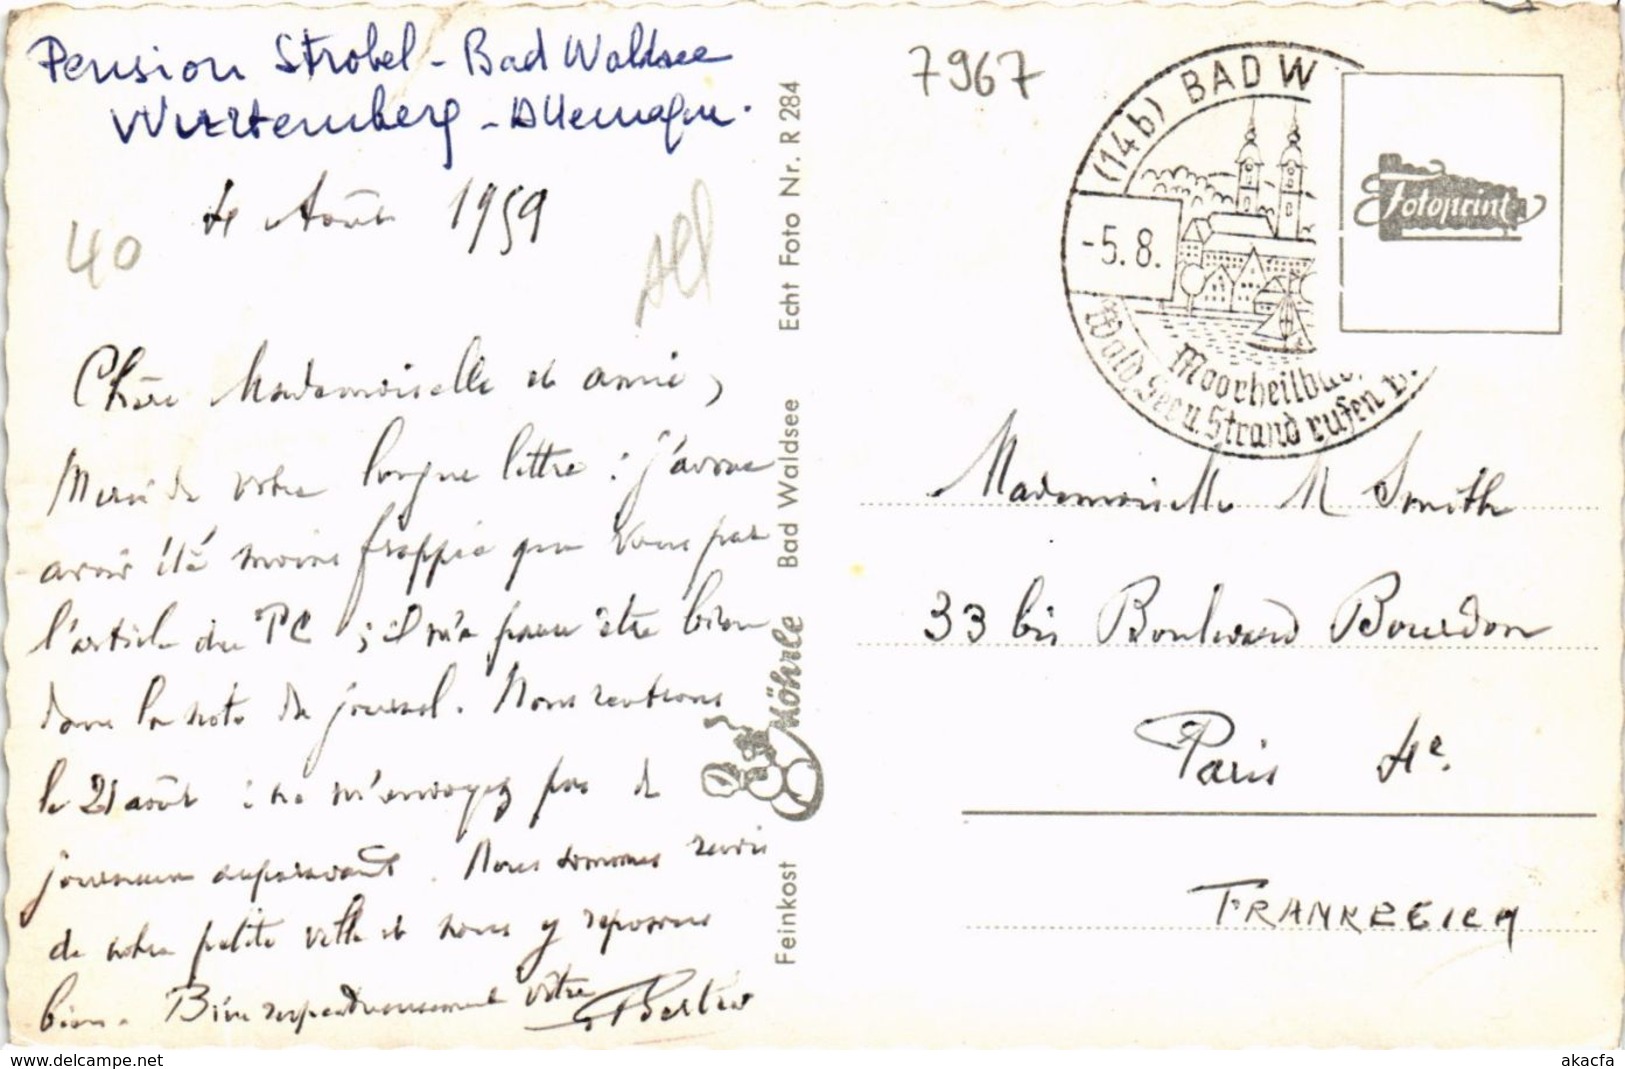 Pension Strobel - Bad Waldsee
Wurtemberg - Allemagne.
4 Août 1959
40
All
Chère Mademoiselle et amie,
Merci de votre longue lettre : j'avoue
avoir été moins frappée que vous par
l'article du PC ; il m'a paru être bien
dans la note du journal. Nous rentrons
le 21 août : ne m'envoyez pas de
journaux auparavant. Nous sommes ravis
de notre petite ville et nous y reposons
bien. Bien respectueusement vôtre
Feinkost Möhrle Bad Waldsee Echt Foto Nr. R 284
7967
(14b) BAD W
-5.8.
Moorheilbad
Wald, See u. Strand rufen
Fotoprint
Mademoiselle M Smith
33 bis Boulevard Bourdon
Paris 4e.
FRANKREICH
www.delcampe.net
akacfa